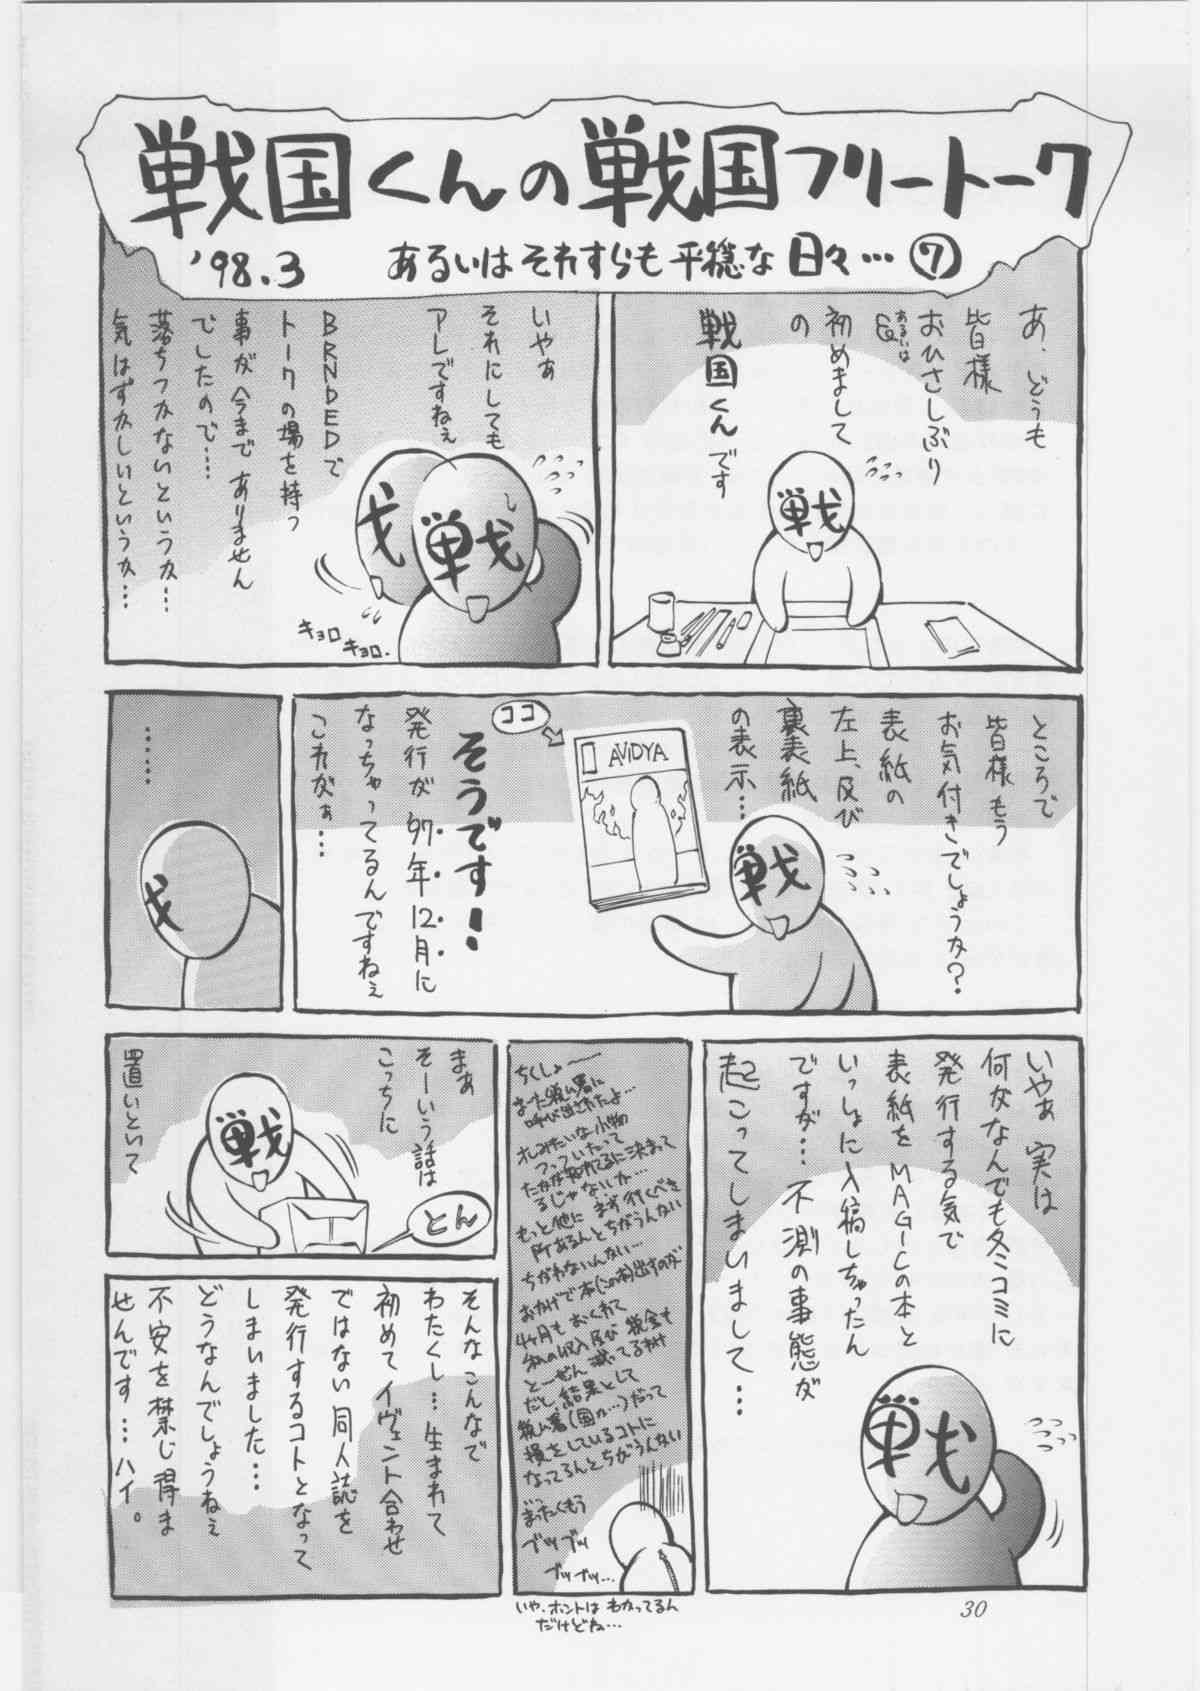 戦国くんの戦国フリートーク
'98.3
あるいはそれすらも平穏な日々…⑦
あ、どうも
皆様
おひさしぶり
あるいは
&
初めまして
の
戦国くんです
戦
いやぁ
それにしても
アレですねぇ
BRNDEDで
トークの場を持つ
事が今までありません
でしたので……
落ちつかないというか…
気はずかしいというか…
戦
キョロ
キョロ.
ところで
皆様もう
お気付きでしょうか?
表紙の
左上、及び
裏表紙
の表示…
ココ
AVIDYA
戦
そうです!
発行が'97年12月に
なっちゃってるんですねぇ
これがぁ…
……
いやぁ実は
何がなんでも冬コミに
発行する気で
表紙をMAGICの本と
いっしょに入稿しちゃったん
ですが…不測の事態が
起こってしまいまして…
戦
ちくしょー
また税ム署に
呼び出されたよ…
オレみたいな小物
つっついたって
たかが知れてるに決まって
るじゃないか…
もっと他にまず行くべき
所あるんとちがうんない
ちがわないんない…
おかげで本(この)出すのが
4ヶ月もおくれて
私の収入及び税金も
とーぜん減ってるわけ
だし結果として
税ム署(国か…)だって
損をしているコトに
なってるんとちがうんない
まったくもう
ブツブツ
ブツブツ…
いや、ホントはわかってるん
だけどね…
まぁ
そーいう話は
こっちに
置いといて
戦
とん
そんなこんなで
わたくし…生まれて
初めてイヴェント合わせ
ではない同人誌を
発行するコトとなって
しまいました…
どうなんでしょうねぇ
不安を禁じ得ま
せんです…ハイ。
30